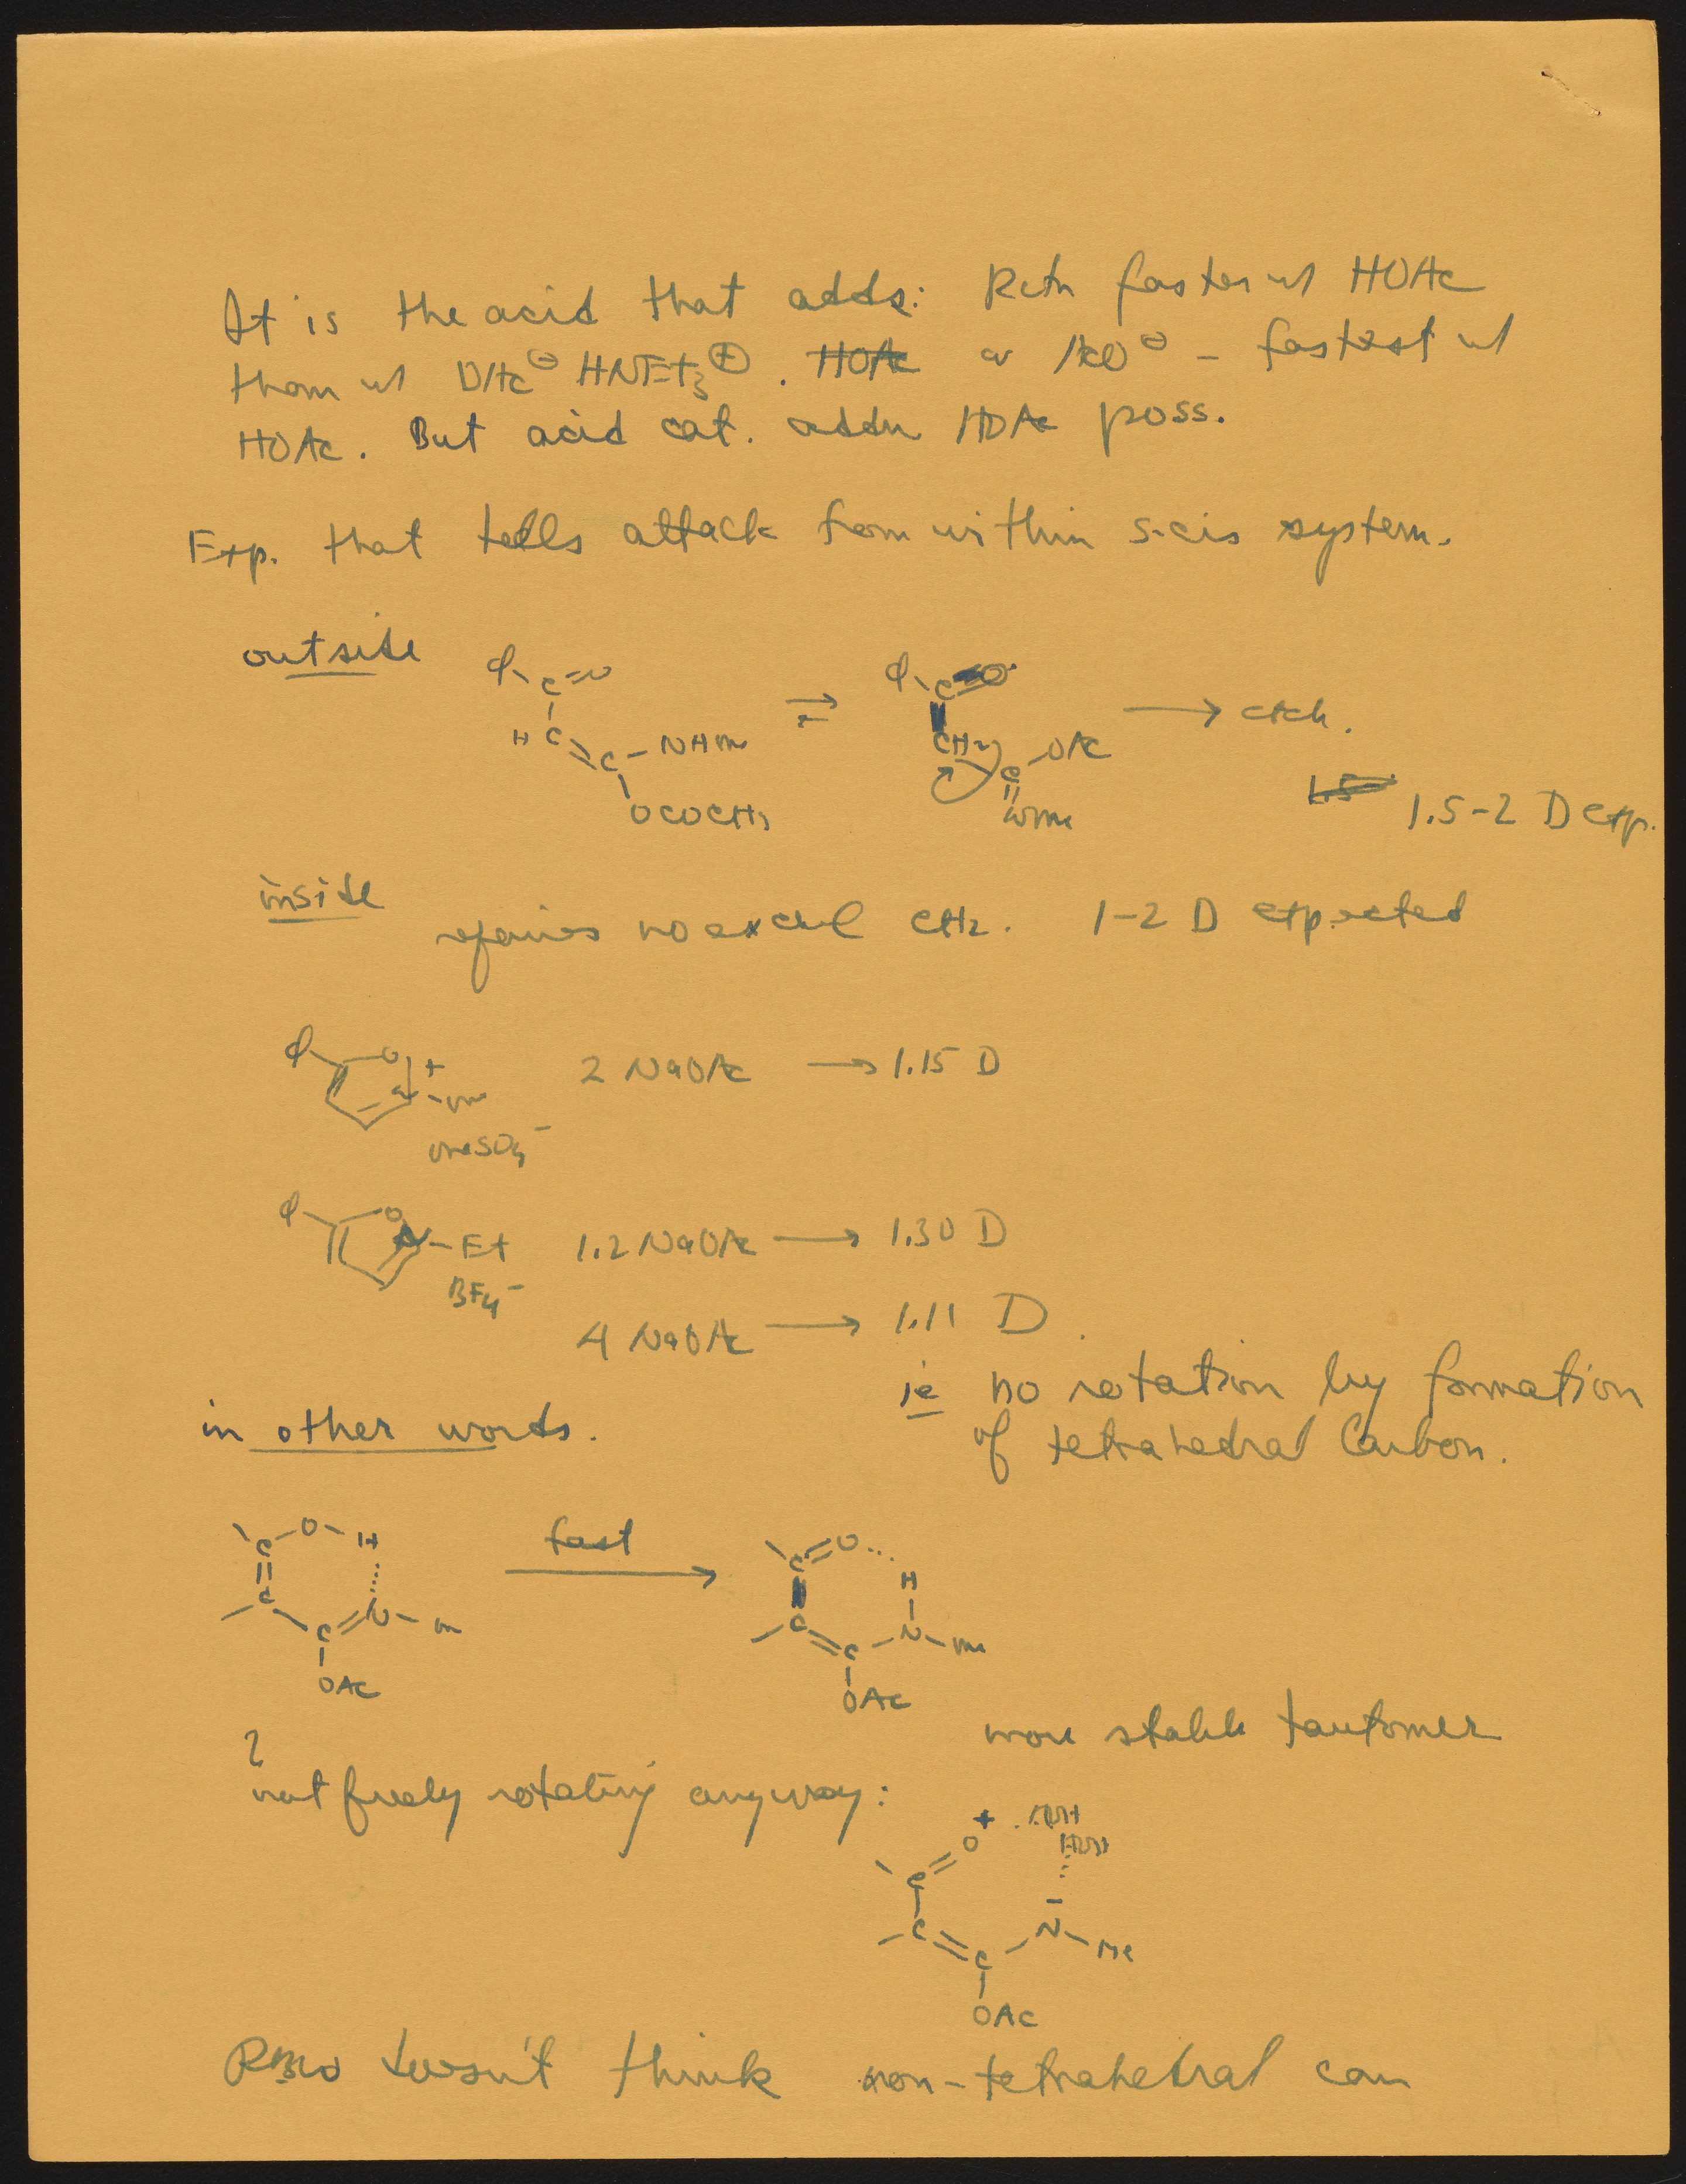 It is the acid that adds: Rctn faster w/ HOAc
than w/ OAc⊖ HNEt₃⊕. HOAc or AcO⊖ – fastest w/
HOAc. But acid cat. addn HOAc poss.
Exp. that tells attack from within s-cis system.
outside
φ C=O
H C=C–NHMe
OCOCH₃
⇌
φ C=O
CH₂
C–OAc
NMe
→ exch.
1.5 1.5–2 D exp.
inside
requires no exch CH₂. 1–2 D expected
φ O N+–Me
MeSO₄⁻
2 NaOAc → 1.15 D
φ O N–Et
BF₄⁻
1.2 NaOAc → 1.30 D
4 NaOAc → 1.11 D.
ie no rotation by formation
of tetrahedral Carbon.
in other words.
C–O–H
C
C=N–Me
OAc
fast
C=O
H
C=C–N–Me
OAc
more stable tautomer
? not freely rotating anyway:
+
C=O
C=C–N–Me
OAc
doesn't think non-tetrahedral can